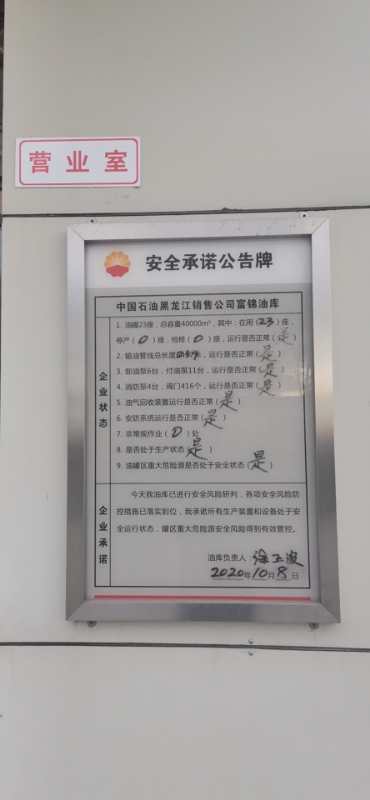 营业室
安全承诺公告牌
中国石油黑龙江销售公司富锦油库
企业状态
1. 油罐23座，总容量40000m³，其中：在用（23）座，
停产（0）座，检修（0）座，运行是否正常（是）
2. 输油管线总长度 米，运行是否正常（是）
3. 卸油泵6台，付油泵11台，运行是否正常（是）
4. 消防泵4台，阀门416个，运行是否正常（是）
5. 油气回收装置运行是否正常（是）
6. 安防系统运行是否正常（是）
7. 非常规作业（0）处
8. 是否处于生产状态（是）
9. 油罐区重大危险源是否处于安全状态（是）
企业承诺
今天我油库已进行安全风险研判，各项安全风险防
控措施已落实到位，我承诺所有生产装置和设备处于安
全运行状态，罐区重大危险源安全风险得到有效管控。
油库负责人：徐玉波
2020年10月8日